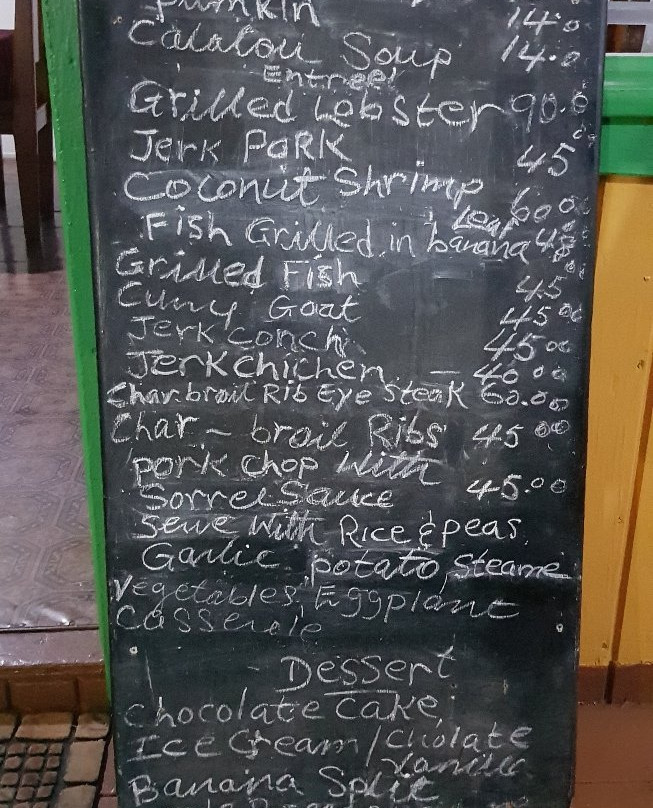 Pumkin 14.0
Calalou Soup 14.0
Entree!
Grilled Lobster 90.0
Jerk PoRK 45 00
Coconut Shrimp 60 0
Leaf
Fish Grilled in banana
Grilled Fish 45
Curry Goat 45 00
Jerk conch 45 00
Jerk chichen — 40 00
Char.broil Rib Eye Steak 60.00
Char - broil Ribs 45 00
pork chop with
Sorrel Sauce 45.00
Serve With Rice & peas,
Garlic potato, Steame
Vegetables, Eggplant
Casserole
Dessert
Chocolate Cake,
Ice Cream / Cholate
Vanilla
Banana Split